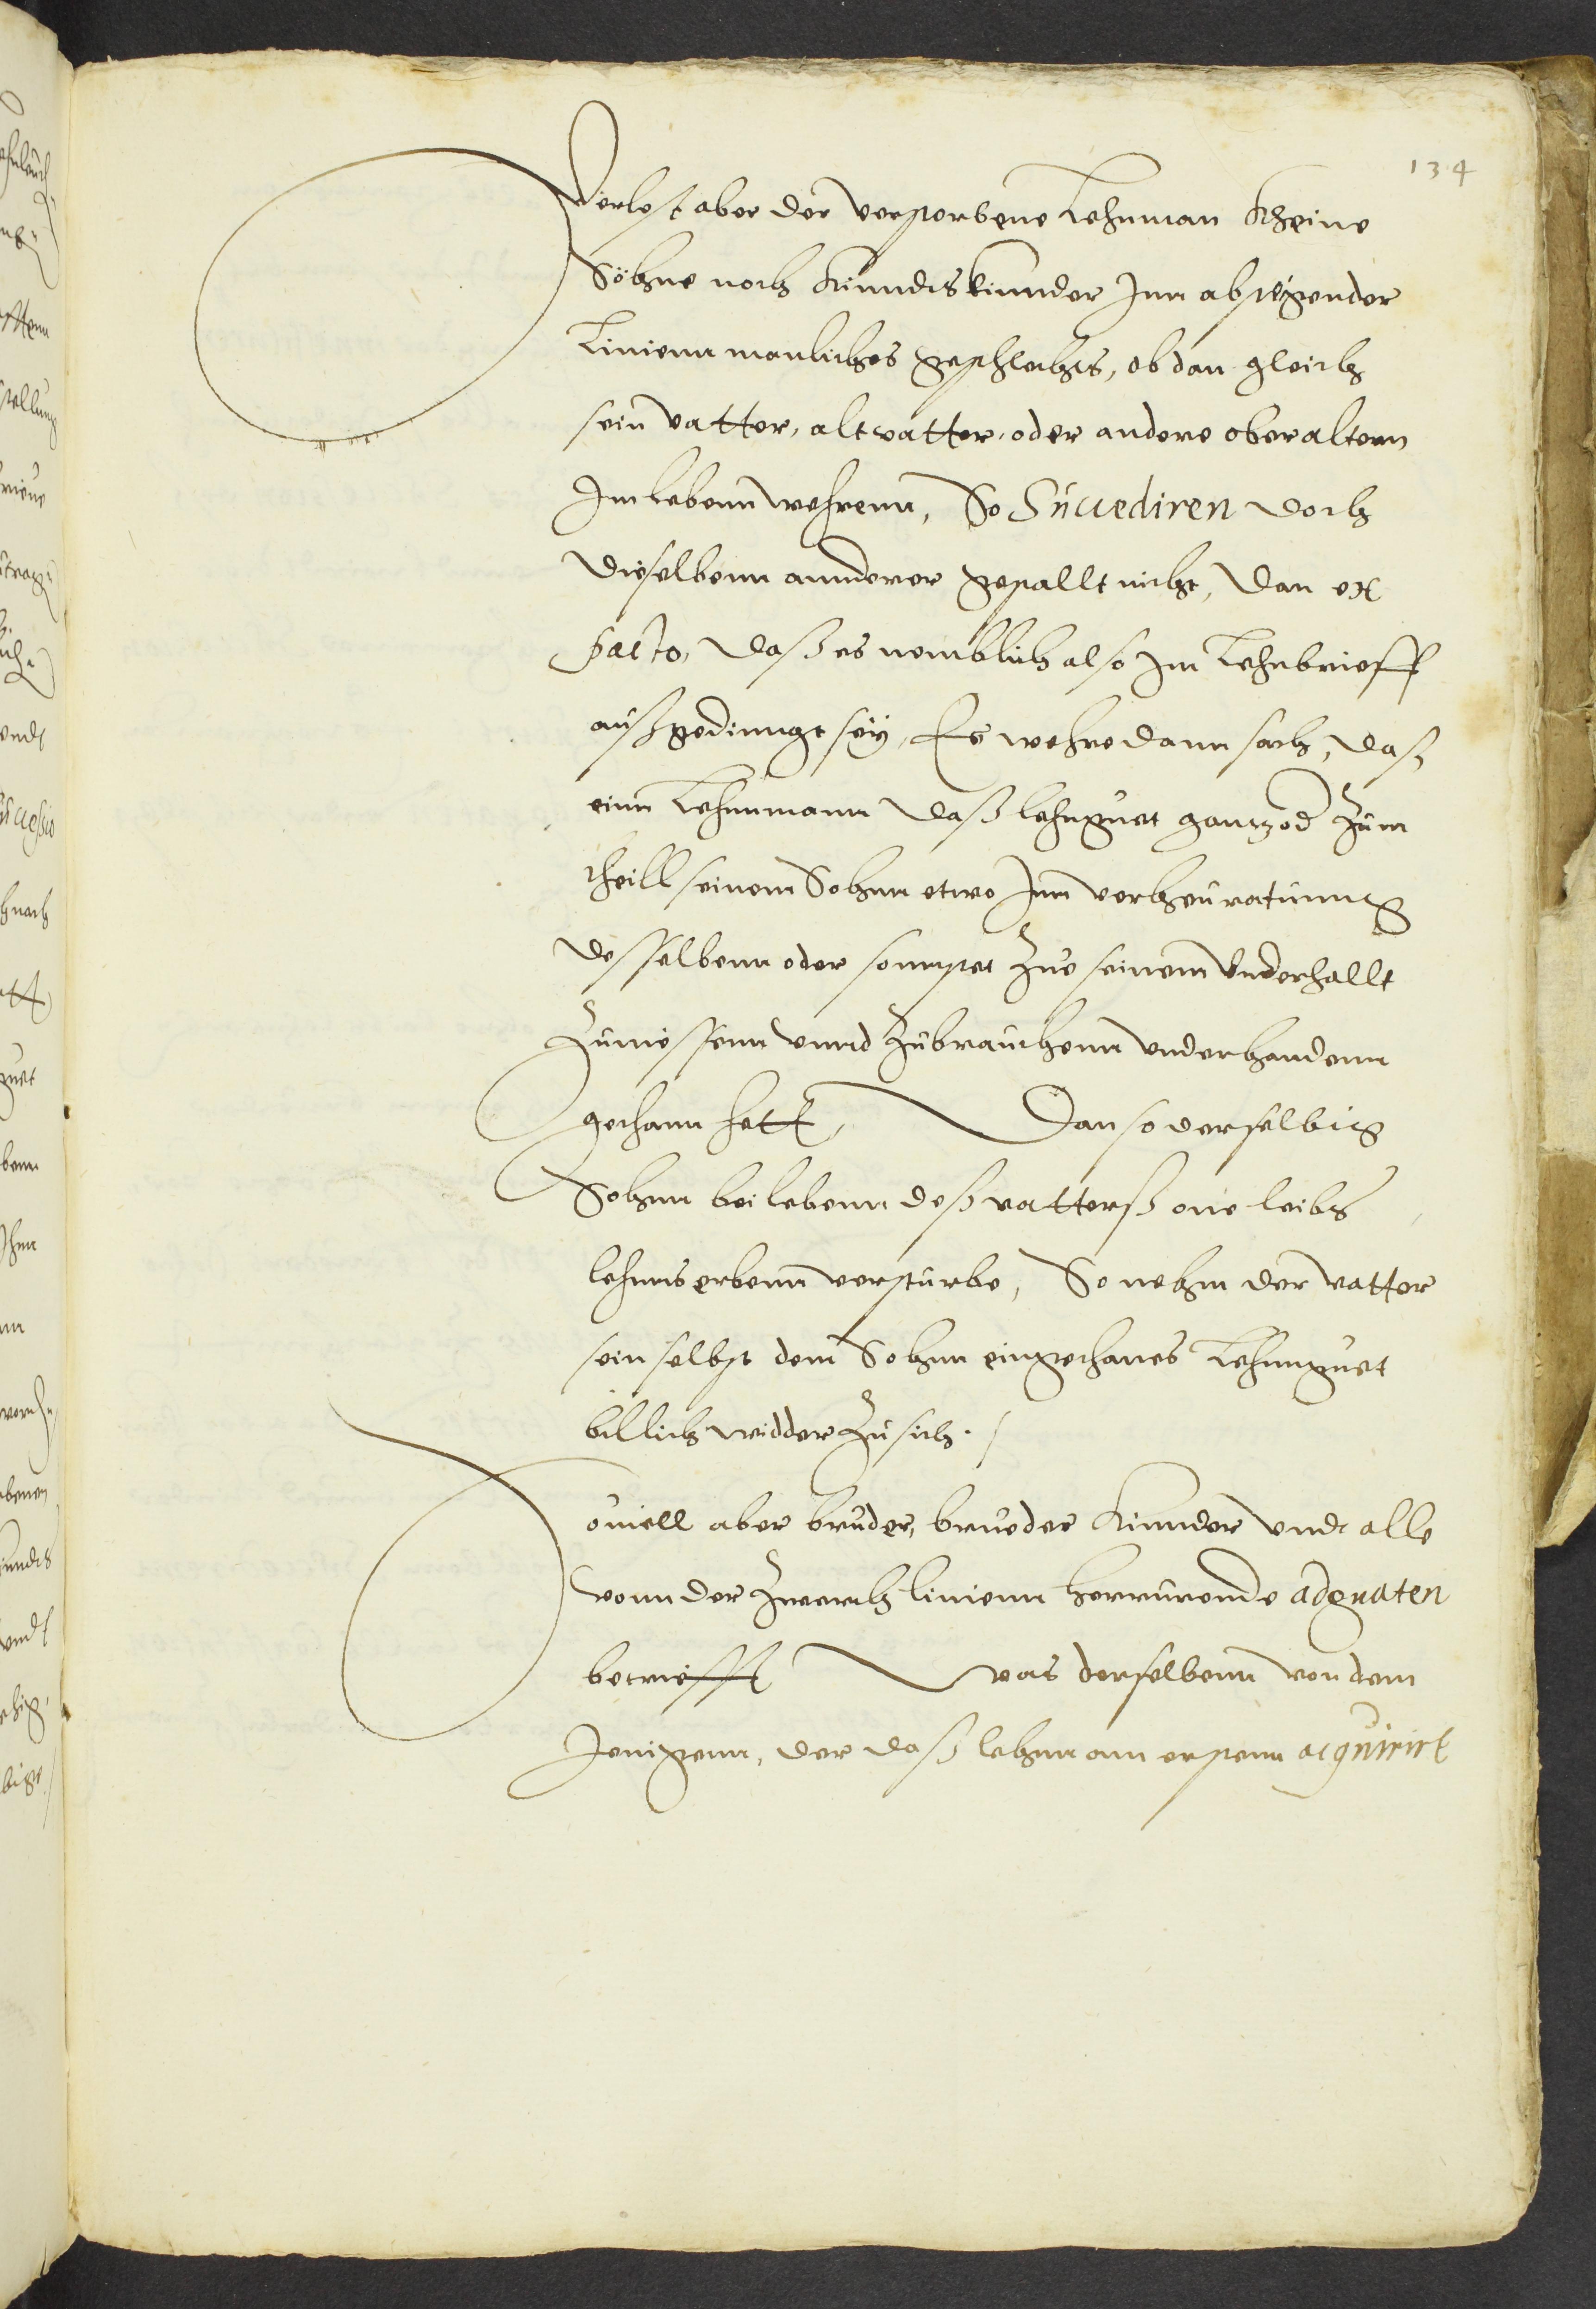 134
Verlest aber der verstorbene Lehnman Kheine
Söhne noch Kinndtskinnder Inn absteigender
Linienn manliches geschlechts, ob dan gleich
sein vatter, altvatter, oder andere oberaltern
Im lebenn wehrenn, So Succediren doch
dieselbenn annderer gestallt nicht, dan ex
pacto, daß es nemblich also Im Lehnbrieff
außgedinngt sey, Es wehre dann sach, daß
einn Lehnmann daß lehngutt gantz od Zum
theill seinem Sohnn etwo Inn verheuratunng
desselbenn oder sonnst Zue seinem Underhallt
Zuniessenn vnnd Zubrauchenn vnderhandenn
gethann hett, Dan so derselbig
Sohnn bei lebenn deß vatterß one leibs
lehnns erbenn versturbe, So nehm der vatter
sein selbst dem Sohnn eingethanes Lehnnguet
billich widder Zu sich ./
Souiell aber bruder, brueder Kinnder vndt alle
vonn der Zwerch linienn herrurende adgnaten
betriefft was derselbenn von dem
Jenigenn, der daß lehnn am erstenn acquirirt
ehnbuch
ttenn
stellung
vndt
Successio
hnach
guet
benn
Ihm
benen
kinndts
vndt